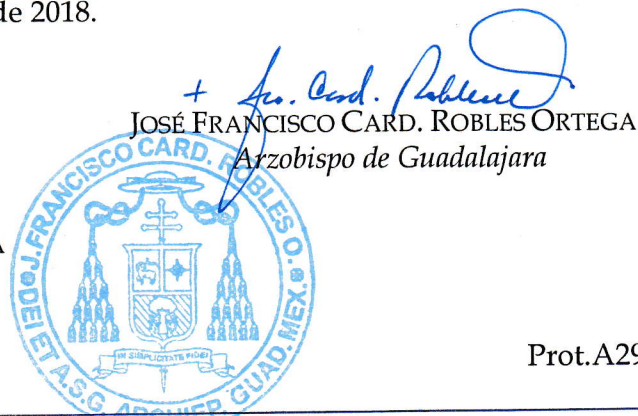 de 2018.
+ Fco. Card. Robles
JOSÉ FRANCISCO CARD. ROBLES ORTEGA
Arzobispo de Guadalajara
J. FRANCISCO CARD. ROBLES O. DEI ET A.S.G. ARCHIEP. GUAD. MEX.
A
IN SIMPLICITATE FIDEI
Prot.A29